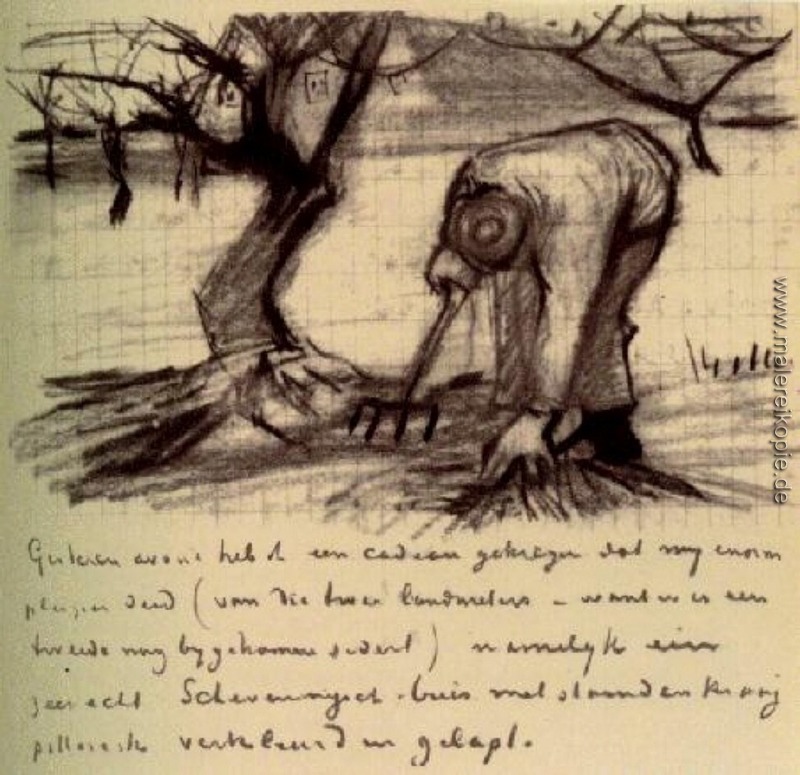 Gisteren avond heb ik een cadeau gekregen dat my enorm
pleizier deed (van die twee landmeters – want er is een
tweede nog bygekomen sedert) namelyk een
zeer echt Scheveningsch buis met staanden kraag
pittoresk verkleurd en gelapt.
www.malereikopie.de